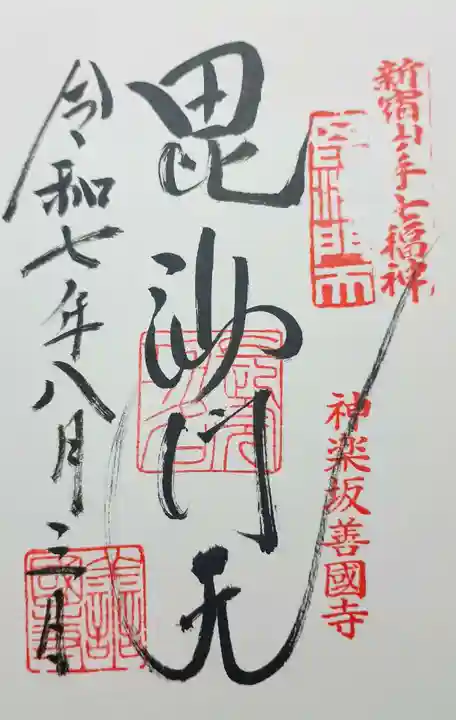 新宿山ノ手七福神
神楽坂善國寺
毘沙門天
令和七年八月三日